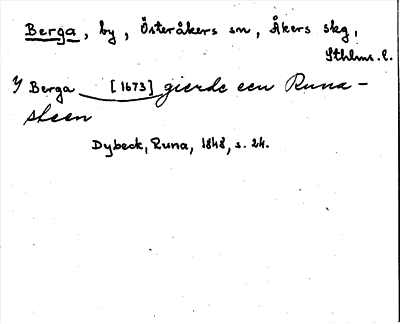 Berga, by, Österåkers sn, Åkers skg,
Sthlms. l.
Y Berga [1673] gierde een Runa-
steen
Dybeck, Runa, 1848, s. 24.